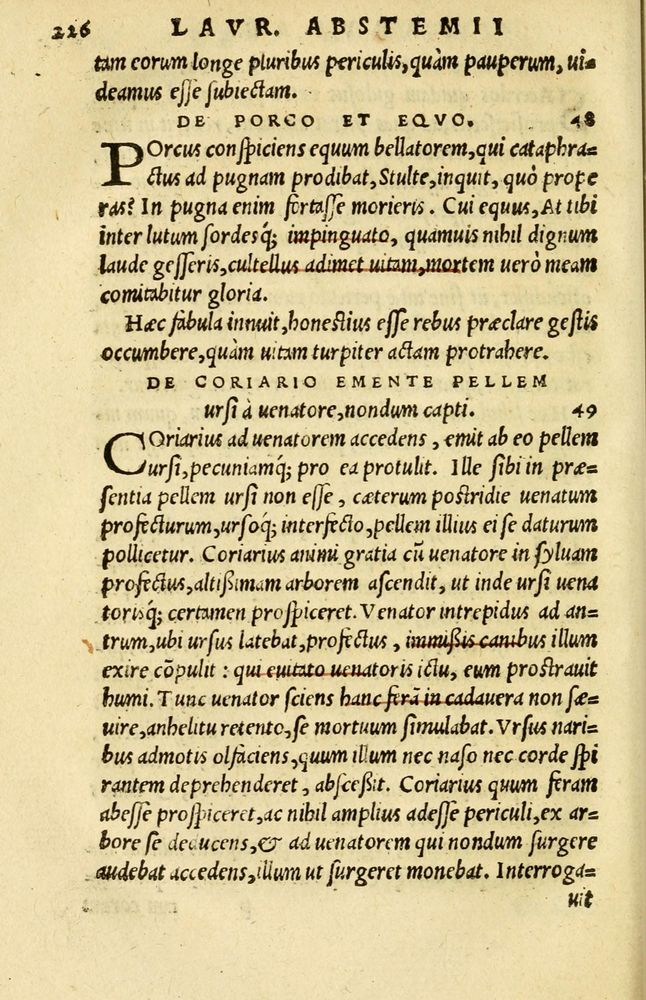 226 LAVR. ABSTEMII
tam eorum longe pluribus periculis, quàm pauperum, ui-
deamus esse subiectam.
DE PORCO ET EQVO. 48
POrcus conspiciens equum bellatorem, qui cataphra-
ctus ad pugnam prodibat, Stulte, inquit, quò prope
ras? In pugna enim fortasse morieris. Cui equus, At tibi
inter lutum sordesq́; impinguato, quamuis nihil dignum
laude gesseris, cultellus adimet uitam, mortem uerò meam
comitabitur gloria.
Hæc fabula innuit, honestius esse rebus præclare gestis
occumbere, quàm uitam turpiter actam protrahere.
DE CORIARIO EMENTE PELLEM
ursi à uenatore, nondum capti. 49
COriarius ad uenatorem accedens, emit ab eo pellem
ursi, pecuniamq́; pro ea protulit. Ille sibi in præ-
sentia pellem ursi non esse, cæterum postridie uenatum
profecturum, ursoq́; interfecto, pellem illius ei se daturum
pollicetur. Coriarius animi gratia cū uenatore in syluam
profectus, altißimam arborem ascendit, ut inde ursi uena
torisq́; certamen prospiceret. Venator intrepidus ad an-
trum, ubi ursus latebat, profectus, immißis canibus illum
exire cōpulit: qui euitato uenatoris ictu, eum prostrauit
humi. Tunc uenator sciens hanc ferā in cadauera non sæ-
uire, anhelitu retento, se mortuum simulabat. Vrsus nari-
bus admotis olfaciens, quum illum nec naso nec corde spi
rantem deprehenderet, absceßit. Coriarius quum feram
abesse prospiceret, ac nihil amplius adesse periculi, ex ar-
bore se deducens, & ad uenatorem qui nondum surgere
audebat accedens, illum ut surgeret monebat. Interroga-
uit